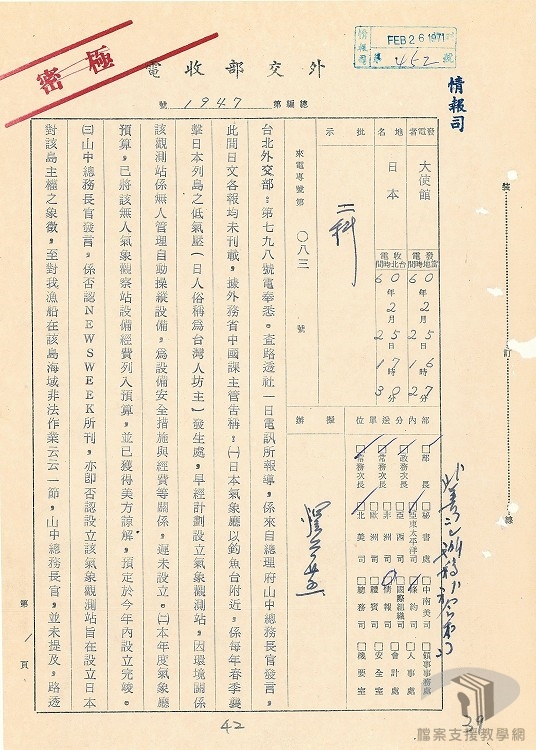 極密
FEB 26 1971
情報司
452
號
外交部收電
總編第 1947 號
情報司
發電者 大使館
地名 日本
批示
二科
來電專號第 〇八三 號
發電當地時間 60年2月25日16時27分
收電台北時間 60年2月25日17時30分
擬辦
部內分送單位
部長
政務次長
常務次長
常務次長
秘書處
亞東太平洋司
亞西司
非洲司
歐洲司
北美司
中南美司
條約司
國際組織司
情報司
禮賓司
總務司
領事事務處
人事處
會計處
安全室
機要室
台北外交部,第七九八號電奉悉。查路透社一日電訊所報導,係來自總理府山中總務長官發言,
此間日文各報均未刊載,據外務省中國課主管告稱:㈠日本氣象廳以釣魚台附近,係每年春季襲
擊日本列島之低氣壓(日人俗稱為台灣人坊主)發生處,早經計劃設立氣象觀測站,因環境關係
該觀測站係無人管理自動操縱設備,為設備安全措施與經費等關係,遲未設立。㈡本年度氣象廳
預算,已將該無人氣象觀察站設備經費列入預算,並已獲得美方諒解,預定於今年內設立完竣。
㈢山中總務長官發言,係否認NEWSWEEK所刊,亦即否認設立該氣象觀測站旨在設立日本
對該島主權之象徵,至對我漁船在該島海域非法作業云云一節,山中總務長官,並未提及,路透
第 1 頁
裝
訂
線
42
39
檔案支援教學網